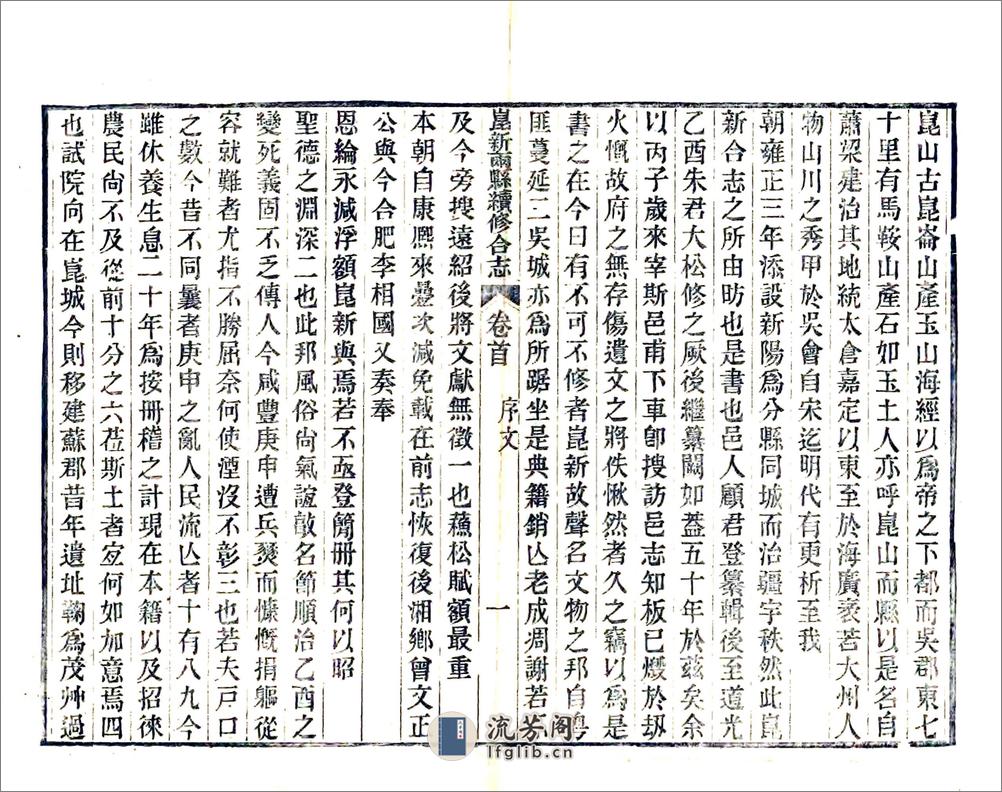 崑山古崑崙山產玉山海經以爲帝之下都而吳郡東七
十里有馬鞍山產石如玉土人亦呼崑山而縣以是名自
蕭梁建治其地統太倉嘉定以東至於海廣袤若大州人
物山川之秀甲於吳會自宋迄明代有更析至我
朝雍正三年添設新陽爲分縣同城而治疆宇秩然此崑
新合志之所由昉也是書也邑人顧君登纂輯後至道光
乙酉朱君大松修之厥後繼纂闕如葢五十年於茲矣余
以丙子歲來宰斯邑甫下車卽搜訪邑志知板已燬於刼
火慨故府之無存傷遺文之將佚愀然者久之竊以爲是
書之在今日有不可不修者崑新故聲名文物之邦自粵
匪蔓延三吳城亦爲所踞坐是典籍銷亾老成凋謝若不
崑新兩縣續修合志 卷首 序文 一
及今旁搜遠紹後將文獻無徵一也蘓松賦額最重
本朝自康熈來疊次減免載在前志恢復後湘鄉曾文正
公與今合肥李相國又奏奉
恩綸永減浮額崑新與焉若不亟登簡冊其何以昭
聖德之淵深二也此邦風俗尙氣誼敦名節順治乙酉之
變死義固不乏傳人今咸豐庚申遭兵燹而慷慨捐軀從
容就難者尤指不勝屈奈何使湮沒不彰三也若夫戸口
之數今昔不同曩者庚申之亂人民流亾者十有八九今
雖休養生息二十年爲按冊稽之計現在本籍以及招徠
農民尙不及從前十分之六莅斯土者宐何如加意焉四
也試院向在崑城今則移建蘇郡昔年遺址鞠爲茂艸過
流芳阁
lfglib.cn